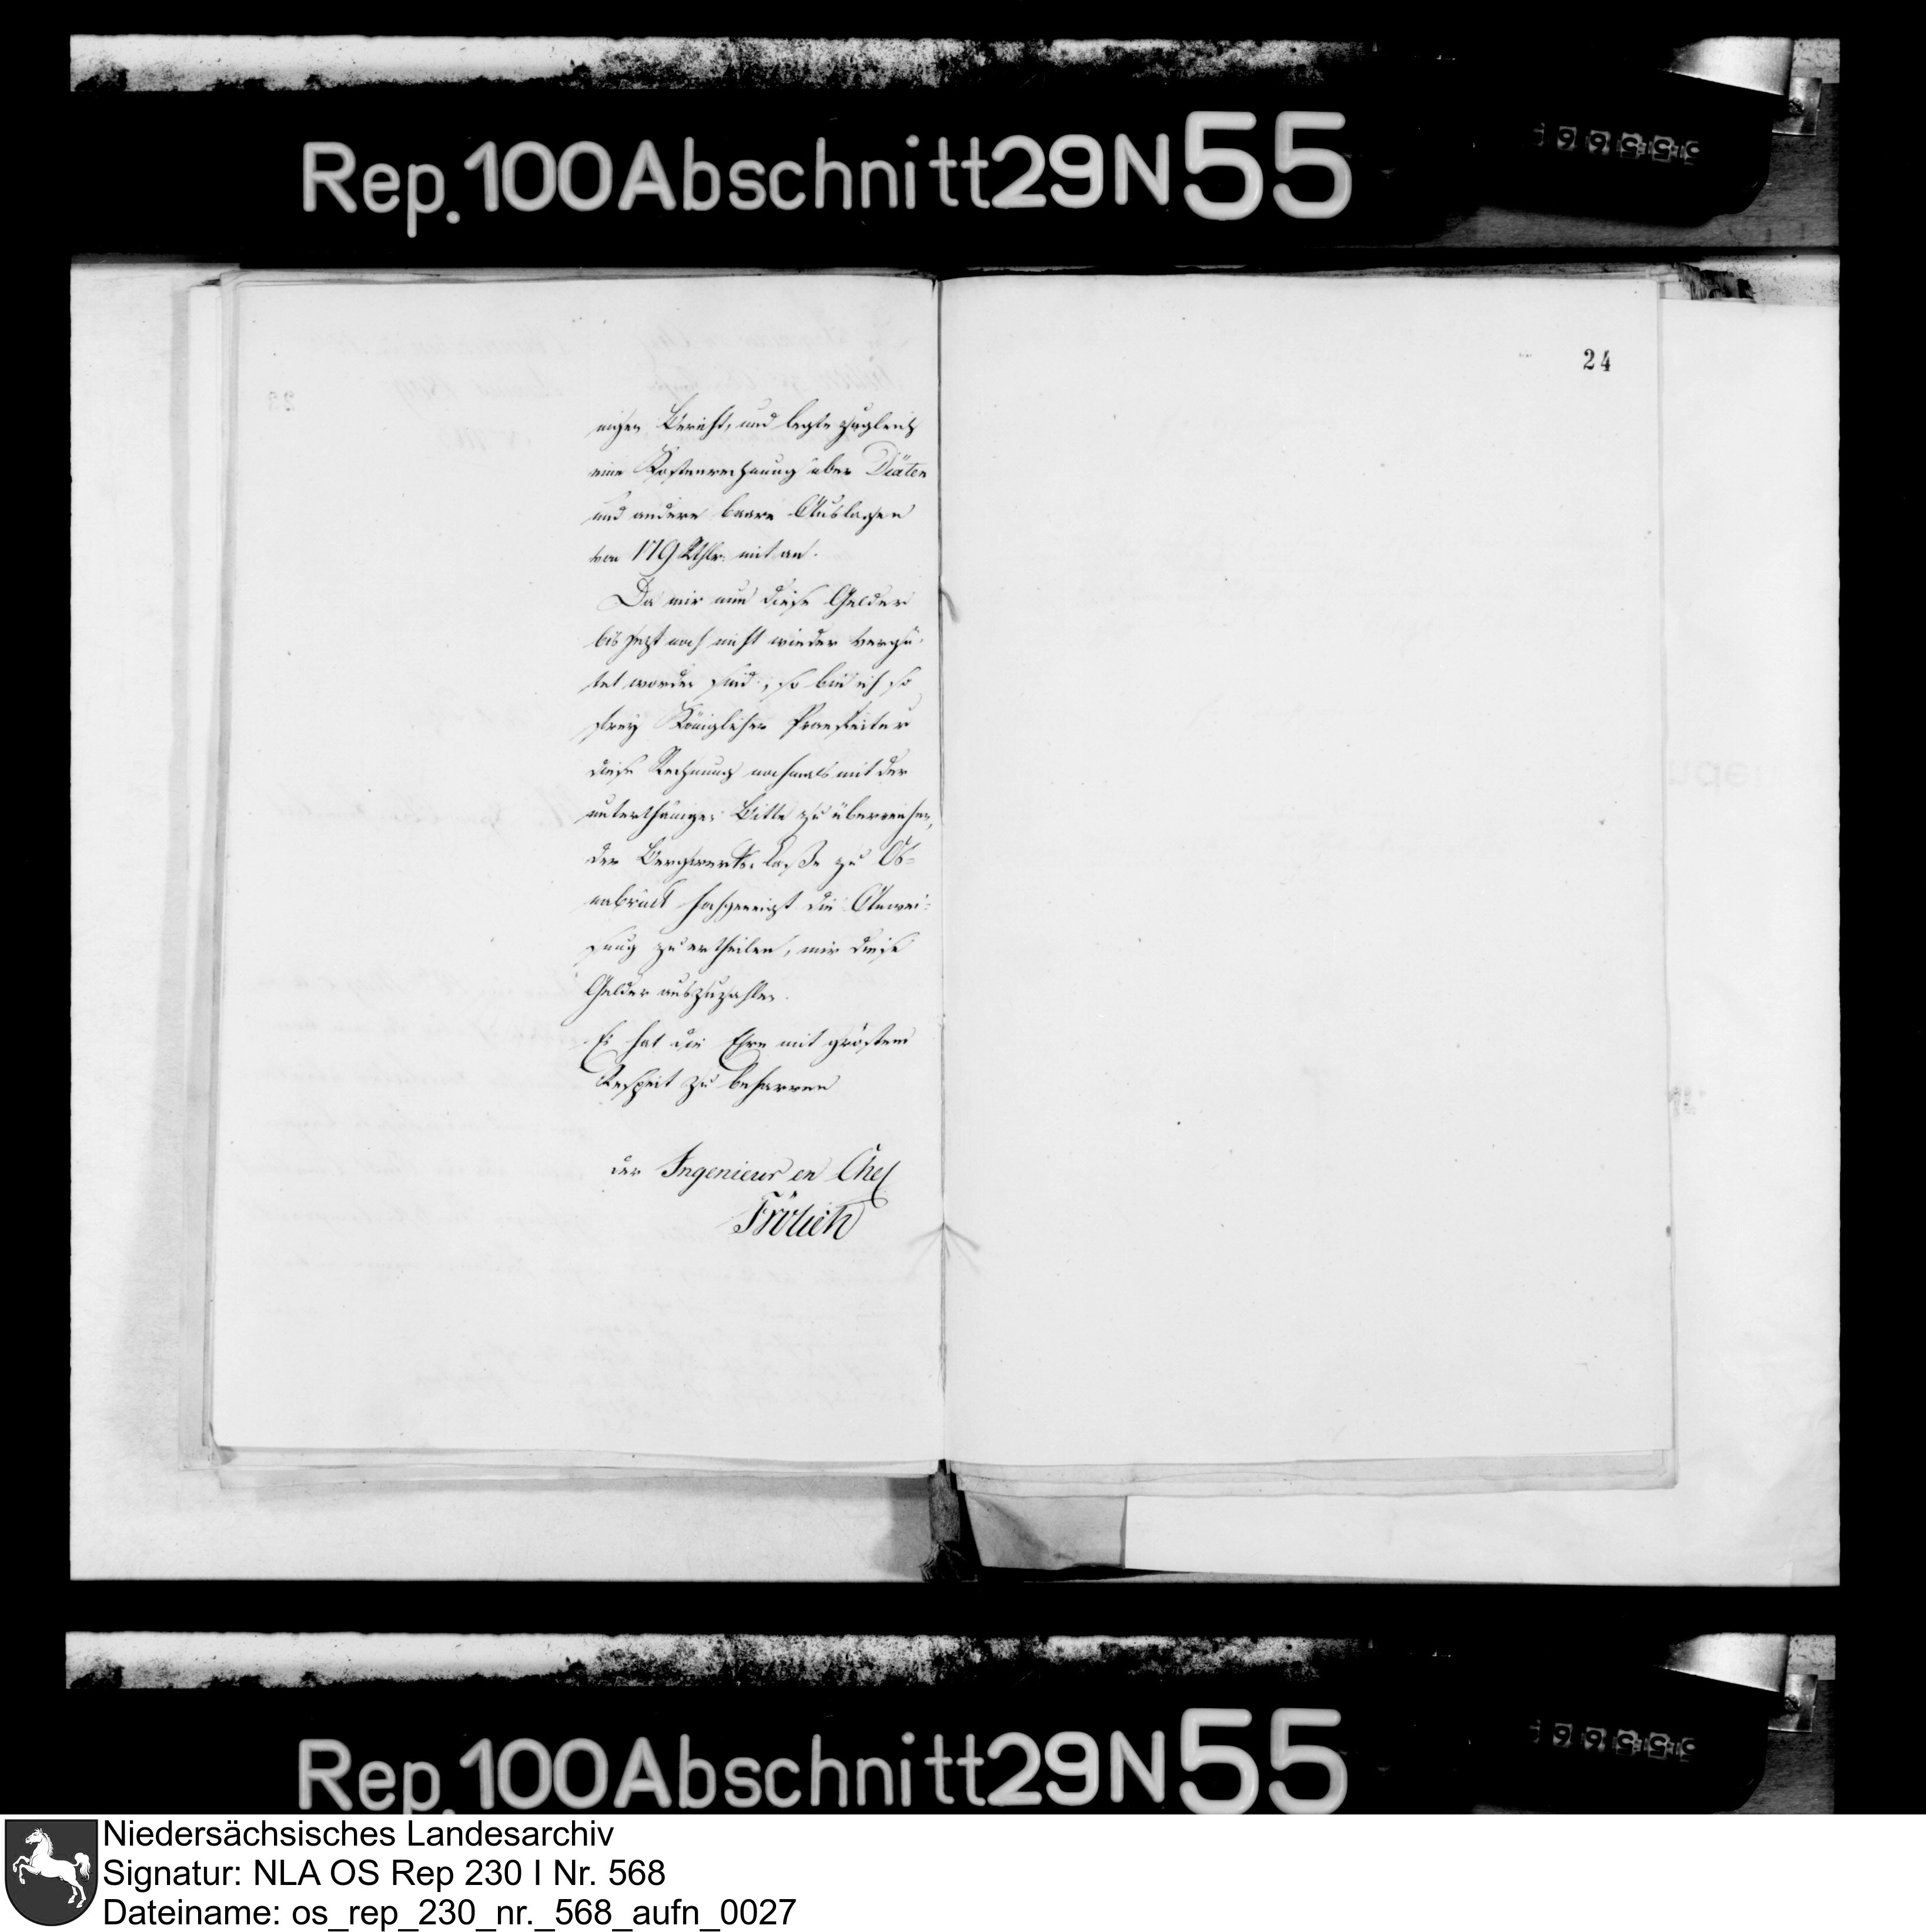 Rep. 100 Abschnitt 29 N 55
24
nigen Bericht, und legte zugleich
eine Kostenrechnung über Diäten
und andere baare Auslagen
von 179 Rthlr: mit an.
Da mir nun diese Gelder
bis jezt noch nicht wieder vergü-
tet worden sind, so bin ich so
frey Königlicher Praefectur
diese Rechnung nochmals mit der
unterthänigen Bitte zu überreichen,
der Bergwerks Casse zu Os=
nabrück hochgeneigt die Anwei=
sung zu ertheilen, mir diese
Gelder auszuzahlen.
Es hat die Ehre mit gröstem
Respect zu beharren
der Ingenieur en Chef
Frölich
Rep. 100 Abschnitt 29 N 55
Niedersächsisches Landesarchiv
Signatur: NLA OS Rep 230 I Nr. 568
Dateiname: os_rep_230_nr._568_aufn_0027